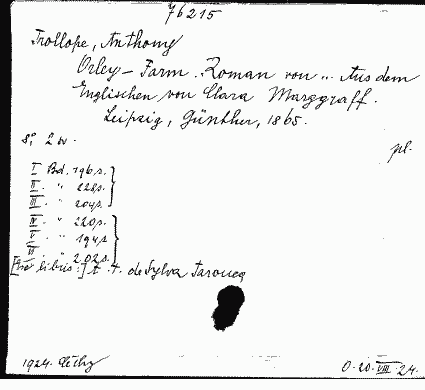 76215
Trollope, Anthony
Orley-Farm. Roman von ... Aus dem
Englischen von Clara Marggraff.
Leipzig, Günther, 1865.
8°, 2 sv.
pl.
I Bd. 196 s.
II. " 228 s.
III. " 204 s.
IV. " 220 s.
V. " 194 s
VI. " 202 s.
[Ex libris:] de Sylva Taroucca
1924.
0.20.VIII.24.